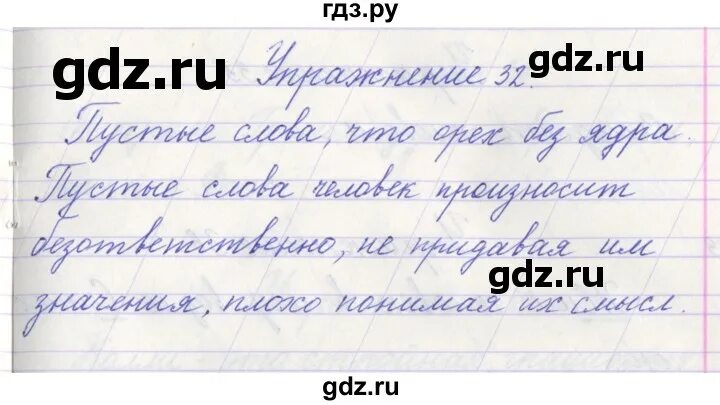 гдз.ру
gdz.ru
gdz.ru
Упражнение 32.
Пустые слова, что орех без ядра.
Пустые слова человек произносит
безответственно, не придавая им
gdz.ru
значения, плохо понимая их смысл.
gdz.ru